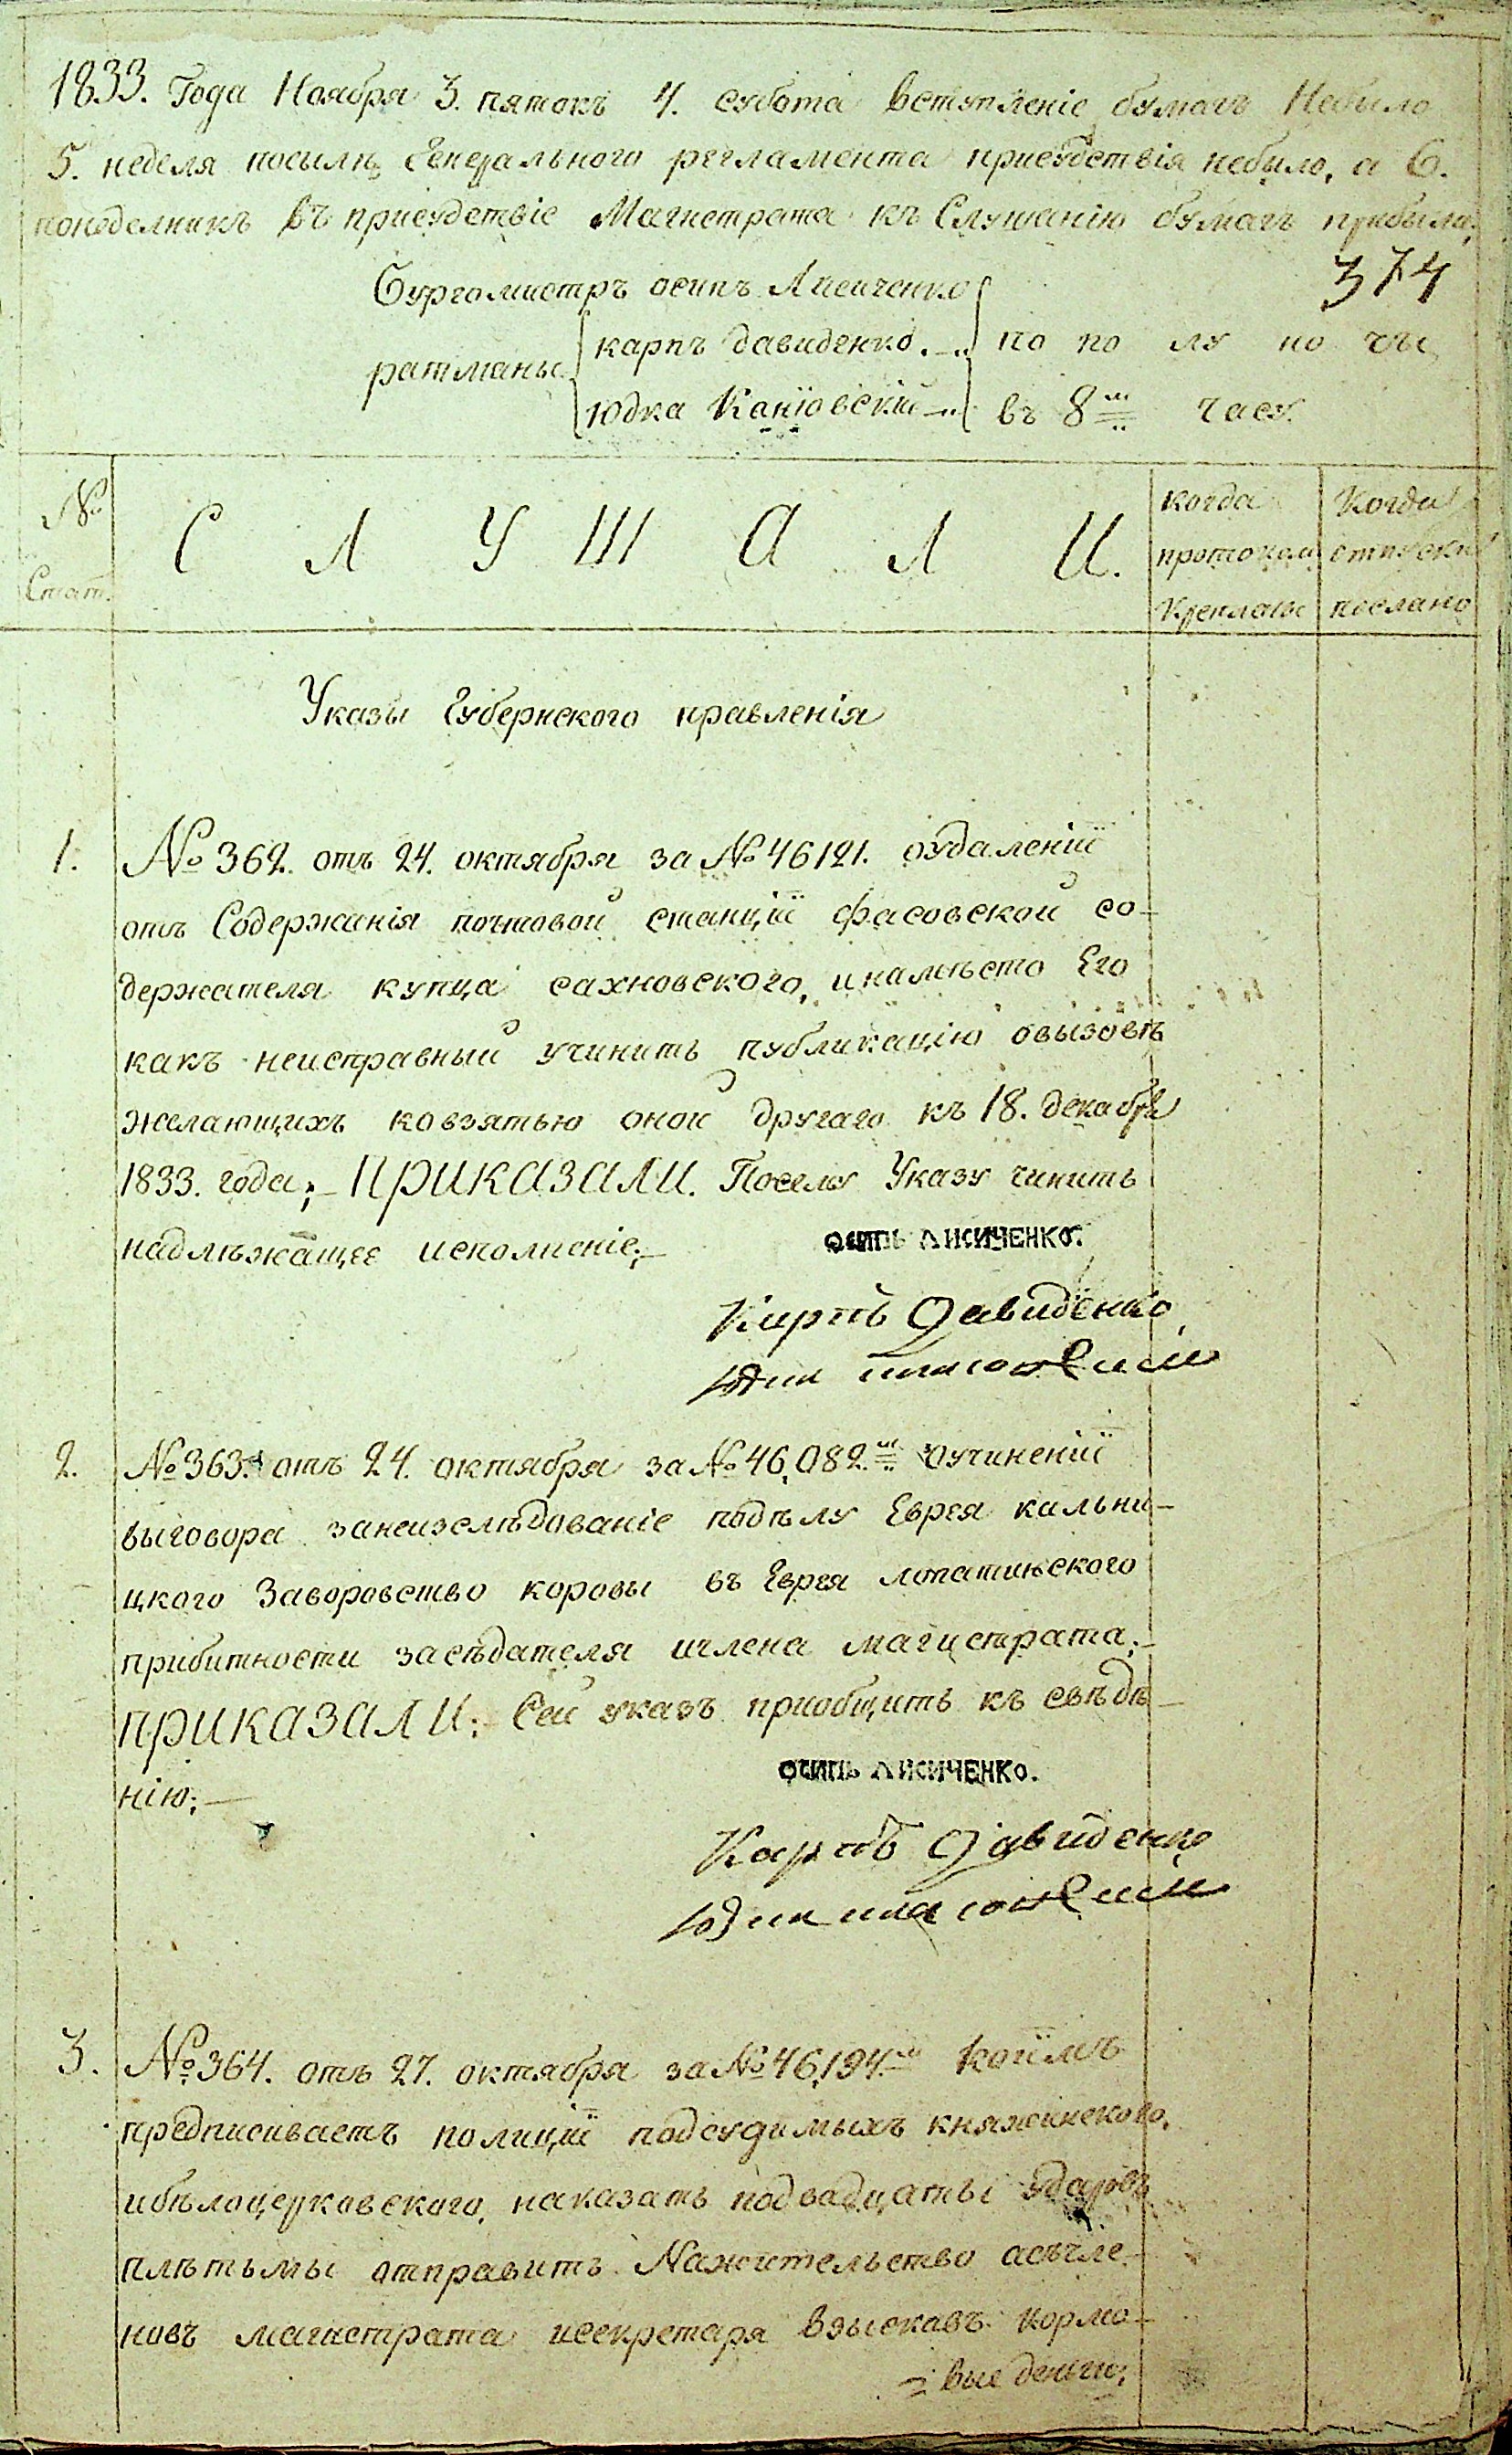 1833. Года Ноября 3. пятокъ 4. субота вступленіе бумагъ небыло
5. неделя посылѣ Генеральнаго регламента присудствія небыло, а 6.
понеделникъ въ присудствіе Магистрата къ Слушанію бумагъ прибыли,
374
Бургомистръ осипъ Лисиченко
ратманы карпъ давиденко. по по лу но чи
юдка Каніовскій въ 8м часу.
№ Стат.
С Л У Ш А Л И.
когда протокол
Когда отпуски послано
Указы Губернского правленія
1. №362. отъ 24. октября за №46121. оудаленіи
отъ Содержанія почтовой станціи фасовской со-
держателя купца сахновского, инамѣсто Его
какъ неисправный учинить публикацію овызовѣ
желающихъ ковзятью оной другаго къ 18. декабря
1833. года; ПРИКАЗАЛИ. Поселу Указу чинить
надлѣжащее исполненіе;
осипъ лисиченко.
Карпъ Давиденко
2. №363. отъ 24. октября за №46,082.м оучиненіи
выговора занеизслѣдованіе подѣлу Еврея кальни-
цкого Заворовство коровы въ Еврея лопатинского
прибитности засѣдателя ичлена магистрата.
ПРИКАЗАЛИ; Сей указъ приобщить къ свѣдѣ-
нію;
осипъ лисиченко.
Карпъ Давиденко
3. №364. отъ 27. октября за №46,194.м коимъ
предписиваетъ полиціи подсудимыхъ княжинского,
ибѣлоцерковского, наказать подвадцаты ударовъ
плѣтьмы отправить Нажительство асъчле-
новъ магистрата исекретаря взыскавъ кормо-
вые деньги;